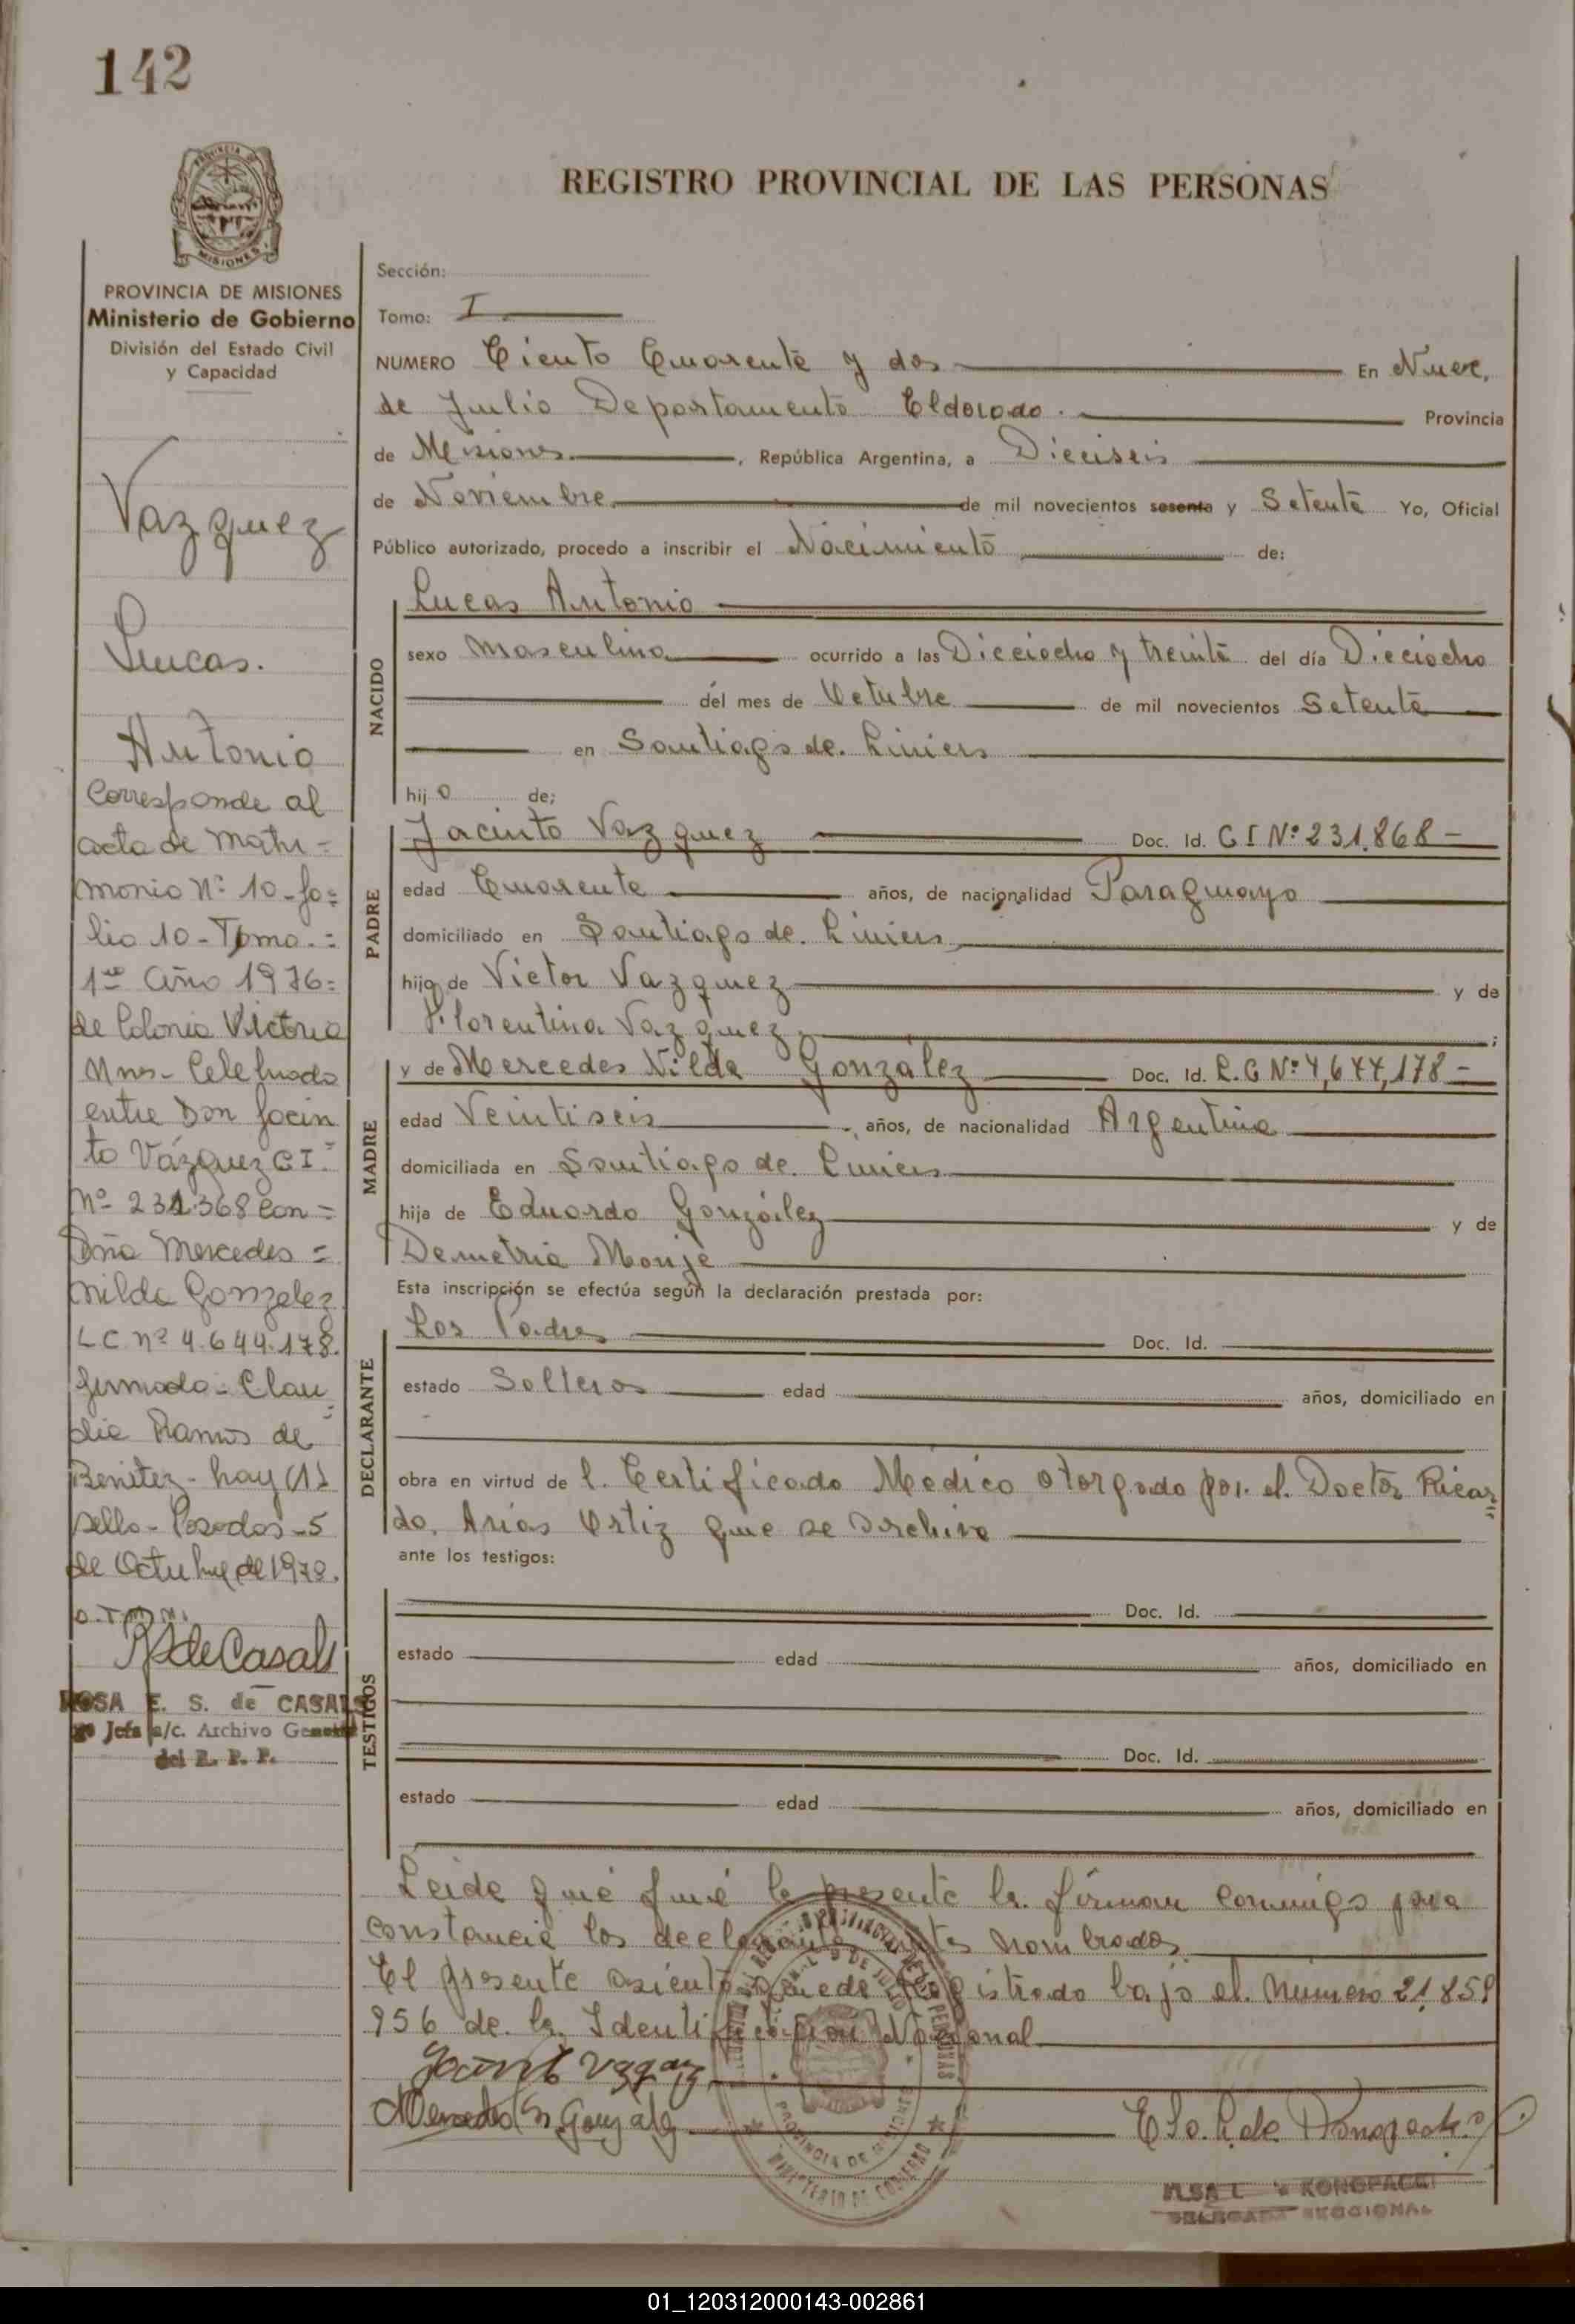 142
REGISTRO PROVINCIAL DE LAS PERSONAS
PROVINCIA DE MISIONES
Ministerio de Gobierno
División del Estado Civil
y Capacidad
Vazquez
Lucas.
Antonio
Corresponde al
acta de Matri=
monio Nº 10-fo=
lio 10-Tomo.=
1ro Año 1976=
de Colonia Victoria
Mnes- Celebrado
entre Don Jacin
to Vázquez CI.
Nº 231.368 con=
Doña Mercedes=
Nilda Gonzalez
LC nº 4.644.178.
firmado- Clau
dia Ramos de
Benitez- hay (1)
sello- Posadas-5
de Octubre de 1978.
RSdeCasals
ROSA E. S. de CASALS
Jefa a/c. Archivo General
del R. P. P.
Sección:
Tomo: I
NUMERO Ciento Cuarenta y dos En Nueve.
de Julio Departamento Eldorado. Provincia
de Misiones. , República Argentina, a Dieciseis
de Noviembre de mil novecientos sesenta y Setenta Yo, Oficial
Público autorizado, procedo a inscribir el Nacimiento de:
NACIDO
Lucas Antonio
sexo Masculino ocurrido a las Dieciocho y treinta del día Dieciocho
del mes de Octubre de mil novecientos Setenta
en Santiago de. Liniers
hijo de;
PADRE
Jacinto Vazquez Doc. Id. C I Nº 231.868-
edad Cuarenta años, de nacionalidad Paraguayo
domiciliado en Santiago de. Liniers
hijo de Victor Vazquez y de
Florentina Vazquez ;
MADRE
y de Mercedes Nilda González Doc. Id. L.C Nº 4,644,178-
edad Veintiseis años, de nacionalidad Argentina
domiciliada en Santiago de. Liniers
hija de Eduardo González y de
Demetria Monje
Esta inscripción se efectúa según la declaración prestada por:
DECLARANTE
Los Padres Doc. Id.
estado Solteros edad años, domiciliado en
obra en virtud de l. Certificado Medico otorgado por. el. Doctor Ricar
do. Arias Ortiz que se archiva
ante los testigos:
TESTIGOS
Doc. Id.
estado edad años, domiciliado en
Doc. Id.
estado edad años, domiciliado en
Leida que fué la presente la. firman conmigo para
constancia los declarantes antes nombrados
El presente asiento queda registrado bajo el. número 21,859
956 de. la. Identificación Nacional
Jacinto Vazquez
Mercedes N Gonzalez
PROVINCIA DE MISIONES
MINISTERIO DE GOBIERNO
Elsa. L. de Konopacki
ELSA L. de KONOPACKI
DELEGADA SECCIONAL
01_120312000143-002861